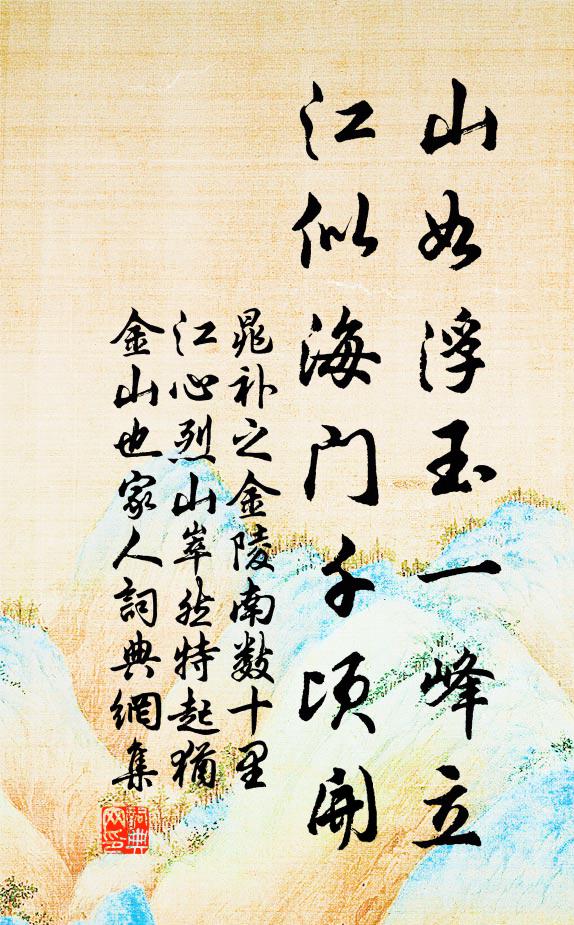 山如浮玉一峰立
江似海门千顷开
晁补之金陵南数十里
江心烈山崒然特起犹
金山也家人詞典網集
詞典